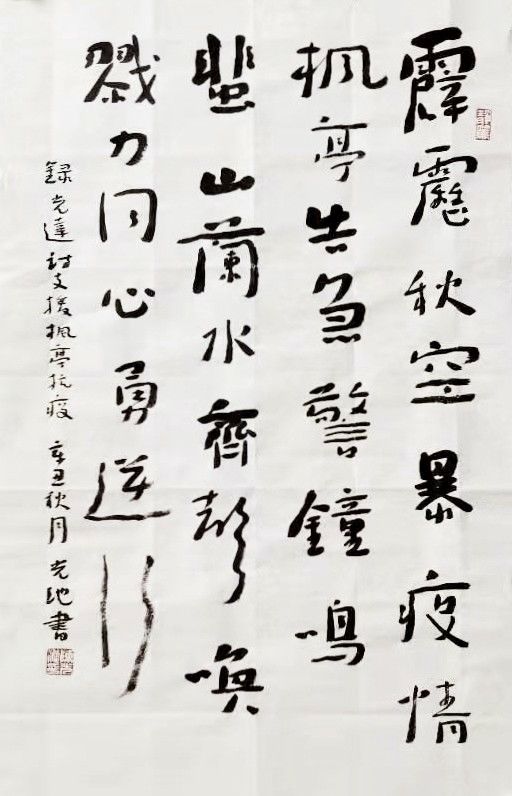 霹靂秋空暴疫情
楓亭告急警鐘鳴
蜚山蘭水齊喚
戮力同心勇逆行
録光達詩支援楓亭抗疫 辛丑秋月 光書